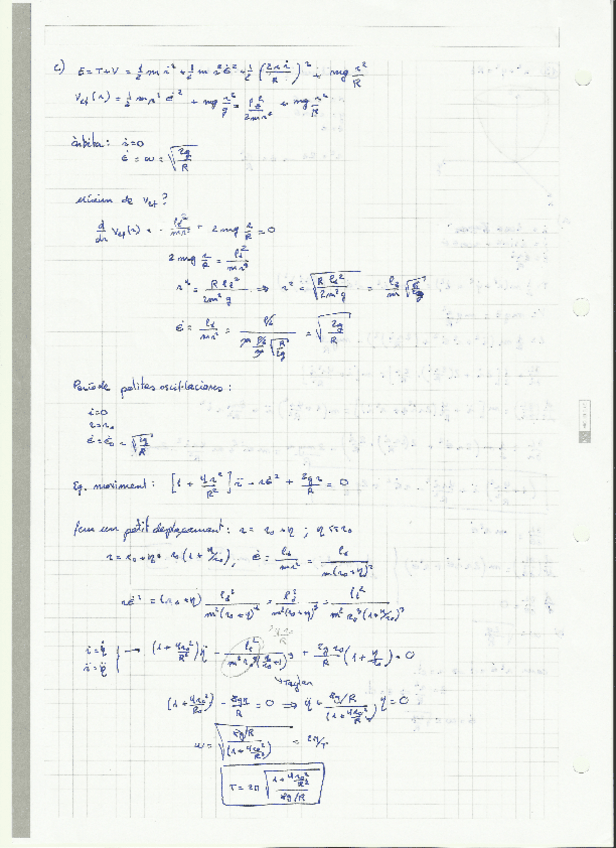 c) E = T+V = 1/2 m ṙ² + 1/2 m r² θ̇² + 1/2 (2rṙ/R)² + mg r²/R
V_ef(r) = 1/2 m r² θ̇² + mg r²/g = l_θ²/2mr² + mg r²/R
òrbita: ṙ=0
θ̇ = ω = √(2g/R)
mínim de V_ef?
d/dr V_ef(r) = - l_θ²/mr³ + 2mg r/R = 0
2mg r/R = l_θ²/mr³
r⁴ = R l_θ²/2m²g ⇒ r² = √(R l_θ²/2m²g) = l_θ/m √(R/2g)
θ̇ = l_θ/mr² = l_θ/(m l_θ/m √(R/2g)) = √(2g/R)
Període petites oscil·lacions:
ṙ=0
r=r₀
θ̇=θ̇₀ = √(2g/R)
Eq. moviment: [1 + 4r²/R²] r̈ - rθ̇² + 2gr/R = 0
Fem un petit desplaçament: r = r₀+η ; η<<r₀
r = r₀+η = r₀(1+η/r₀), θ̇ = l_θ/mr² = l_θ/m(r₀+η)²
rθ̇² = (r₀+η) l_θ²/m²(r₀+η)⁴ = l_θ²/m²(r₀+η)³ = l_θ²/m² r₀³(1+η/r₀)³
ṙ=η̇
r̈=η̈ } → (1+4r₀²/R²) η̈ - l_θ²/m² r₀³(η/r₀+1)³ + 2g r₀/R (1+η/r₀) = 0
↘ Taylor
(1+4r₀²/R²) - 8gη/R = 0 ⇒ η̈ + 8g/R/(1+4r₀²/R²) η = 0
ω = √(8g/R/(1+4r₀²/R²)) = 2π/T
T = 2π √((1+4r₀²/R²)/8g/R)